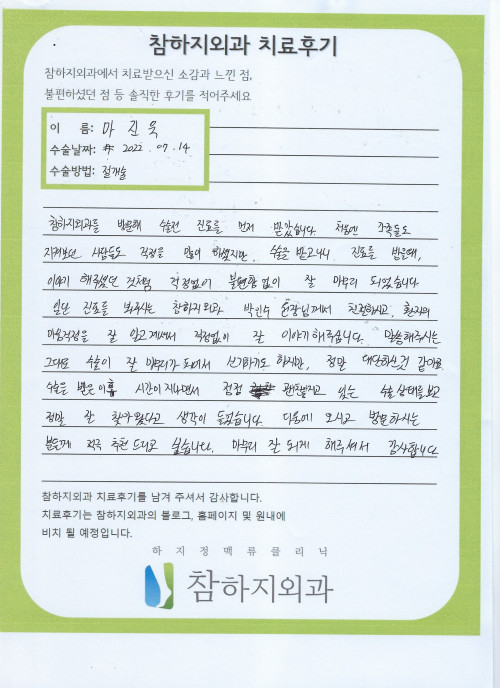 참하지외과 치료후기
참하지외과에서 치료받으신 소감과 느낀 점,
불편하셨던 점 등 솔직한 후기를 적어주세요
이 름: 마진욱
수술날짜: 2022. 07. 14
수술방법: 절개술
참하지외과를 방문해 수술전 진료를 먼저 받았습니다. 처음엔 가족들도
지켜보던 사람들도 걱정을 많이 하셨지만, 수술을 받고나니 진료를 받을때,
이야기 해주셨던 것처럼 걱정없이 불편함 없이 잘 마무리 되었습니다
일단 진료를 봐주시는 참하지외과 박인수 원장님께서 친절하시고, 환자의
마음걱정을 잘 알고계셔서 걱정없이 잘 이야기해주십니다. 말씀해주시는
그대로 수술이 잘 마무리가 되어서 신기하기도 하지만, 정말 대단하신것 같아요
수술을 받은 이후 시간이 지나면서 점점 괜찮아지고 있는 수술 상태를 보고
정말 잘 찾아왔다고 생각이 들었습니다. 다음에 오시고 방문하시는
분들께 적극 추천 드리고 싶습니다. 마무리 잘 되게 해주셔서 감사합니다
참하지외과 치료후기를 남겨 주셔서 감사합니다.
치료후기는 참하지외과의 블로그, 홈페이지 및 원내에
비치 될 예정입니다.
하지정맥류클리닉
참하지외과